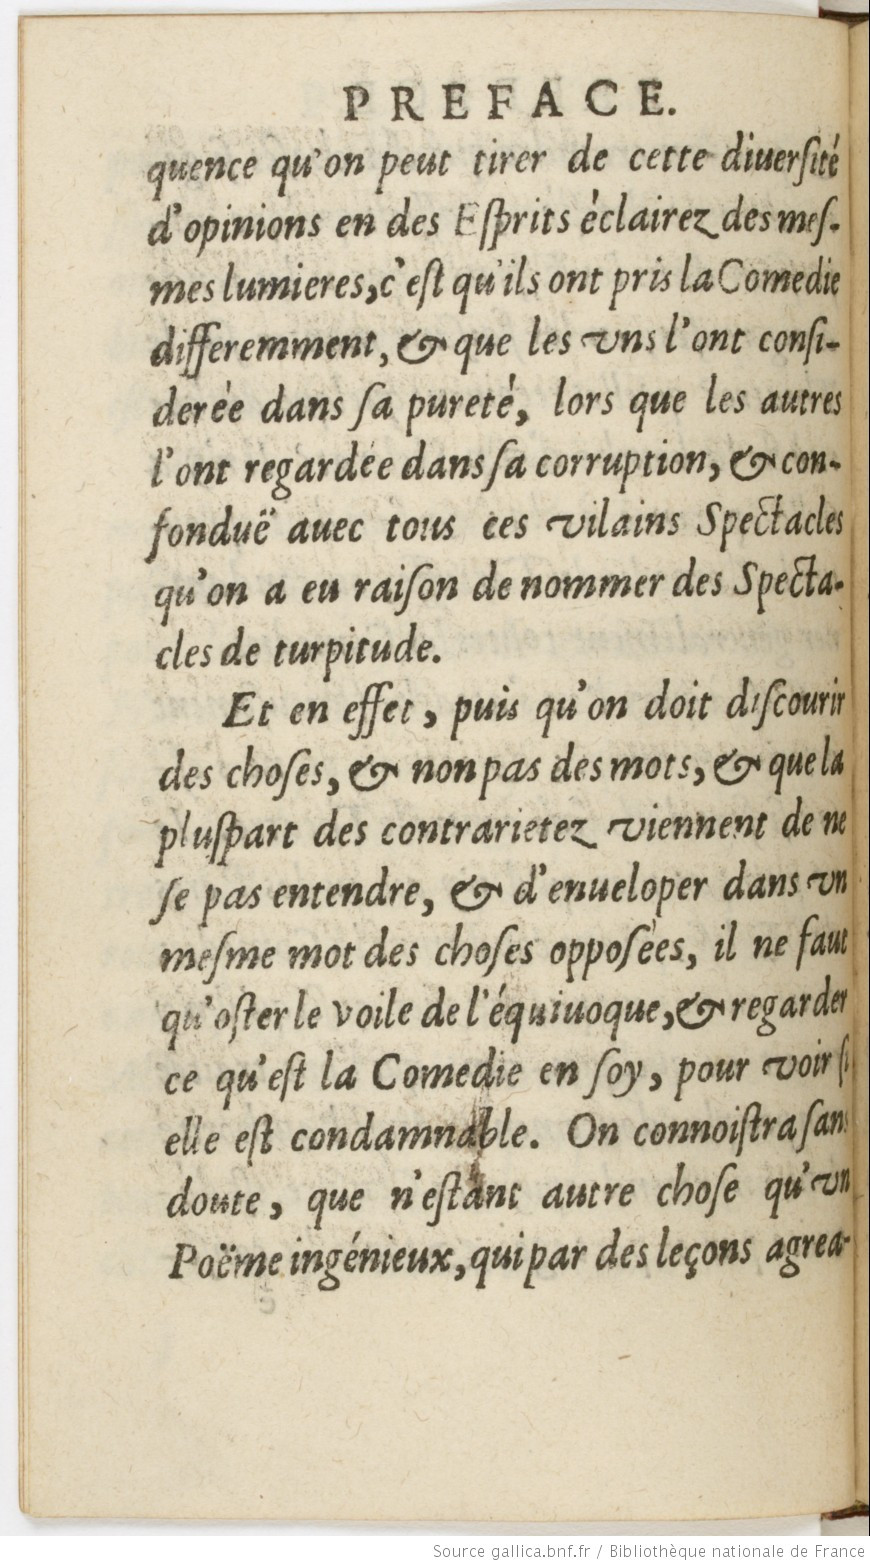 PREFACE.
quence qu'on peut tirer de cette diuerſité
d'opinions en des Eſprits éclairez des meſ-
mes lumieres, c'eſt qu'ils ont pris la Comedie
differemment, & que les vns l'ont conſi-
derée dans ſa pureté, lors que les autres
l'ont regardée dans ſa corruption, & con-
fonduë auec tous ces vilains Spectacles
qu'on a eu raiſon de nommer des Specta-
cles de turpitude.
Et en effet, puis qu'on doit diſcourir
des choſes, & non pas des mots, & que la
pluſpart des contrarietez viennent de ne
ſe pas entendre, & d'enueloper dans vn
meſme mot des choſes opposées, il ne faut
qu'oſter le voile de l'équiuoque, & regarder
ce qu'eſt la Comedie en ſoy, pour voir ſi
elle eſt condamnable. On connoiſtra ſans
doute, que n'eſtant autre choſe qu'vn
Poëme ingénieux, qui par des leçons agrea-
Source gallica.bnf.fr / Bibliothèque nationale de France